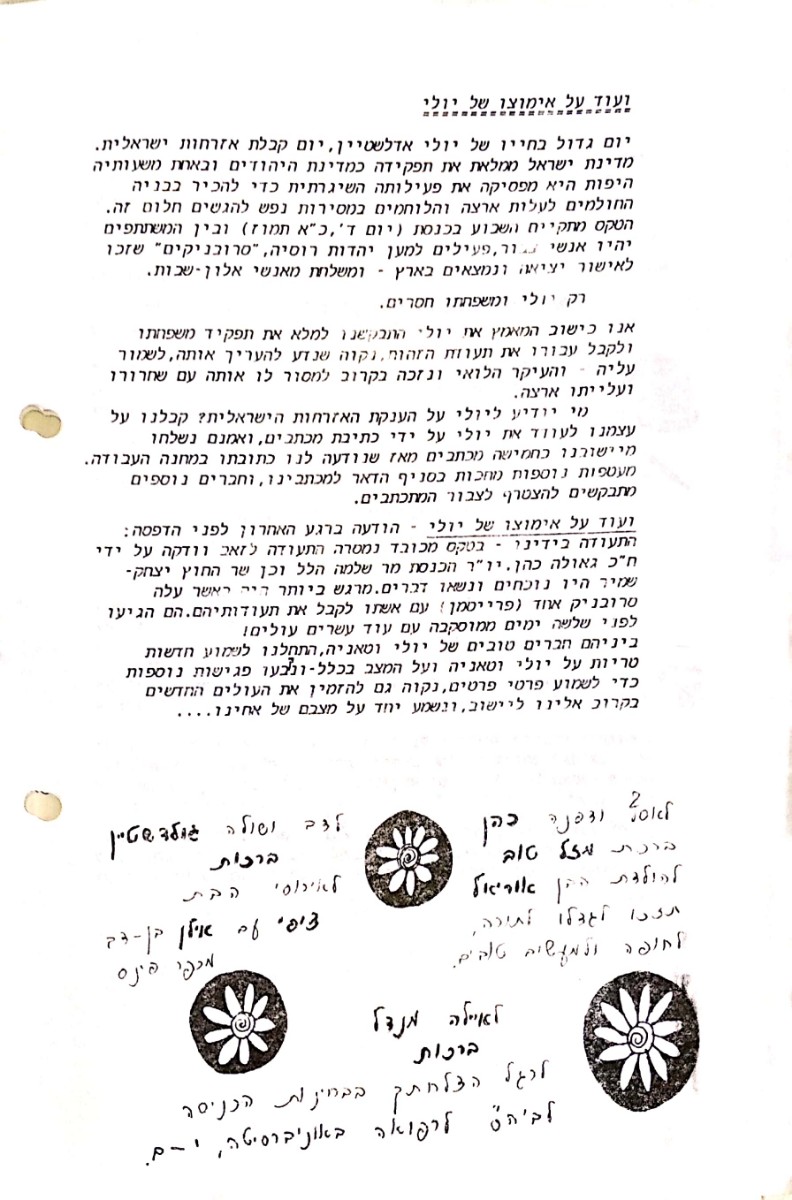 ועוד על אימוצו של יולי
יום גדול בחייו של יולי אדלשטיין,יום קבלת אזרחות ישראלית.
מדינת ישראל ממלאת את תפקידה כמדינת היהודים ובאחת משעותיה
היפות היא מפסיקה את פעילותה השיגרתית כדי להכיר בבניה
החולמים לעלות ארצה והלוחמים במסירות נפש להגשים חלום זה.
הטקס מתקיים השבוע בכנסת (יום ד',כ"א תמוז) ובין המשתתפים
יהיו אנשי צבור,פעילים למען יהדות רוסיה,"סרובניקים" שזכו
לאישור יציאה ונמצאים בארץ - ומשלחת מאנשי אלון-שבות.
רק יולי ומשפחתו חסרים.
אנו כישוב המאמץ את יולי התבקשנו למלא את תפקיד משפחתו
ולקבל עבורו את תעודת הזהות,נקוה שנדע להעריך אותה,לשמור
עליה - והעיקר הלואי ונזכה בקרוב למסור לו אותה עם שחרורו
ועלייתו ארצה.
מי יודיע ליולי על הענקת האזרחות הישראלית? קבלנו על
עצמנו לעודד את יולי על ידי כתיבת מכתבים,ואמנם נשלחו
מיישובנו כחמישה מכתבים מאז שנודעה לנו כתובתו במחנה העבודה.
מעטפות נוספות מחכות בסניף הדאר למכתבינו,וחברים נוספים
מתבקשים להצטרף לצבור המתכתבים.
ועוד על אימוצו של יולי - הודעה ברגע האחרון לפני הדפסה:
התעודה בידינו - בטקס מכובד נמסרה התעודה לזאב וודקה על ידי
ח"כ גאולה כהן.יו"ר הכנסת מר שלמה הלל וכן שר החוץ יצחק-
שמיר היו נוכחים ונשאו דברים.מרגש ביותר היה כאשר עלה
סרובניק אחד (פרייטמן) עם אשתו לקבל את תעודותיהם.הם הגיעו
לפני שלשה ימים ממוסקבה עם עוד עשרים עולים!
ביניהם חברים טובים של יולי וטאניה,התחלנו לשמוע חדשות
טריות על יולי וטאניה ועל המצב בכלל-ונקבעו פגישות נוספות
כדי לשמוע פרטי פרטים,נקוה גם להזמין את העולים החדשים
בקרוב אלינו ליישוב,ונשמע יחד על מצבם של אחינו....
לאסי ודפנה כהן
ברכת מזל טוב
להולדת הבן אוריאל
תזכו לגדלו לתורה,
לחופה ולמעשים טובים.
לדב ושולה גולדשטיין
ברכות
לאירוסי הבת
ציפי עם אילן בן-דב
מכפר פינס
לאיילה מנדל
ברכות
לרגל הצלחתך בבחינות הכניסה
לביה"ס לרפואה באוניברסיטה, י-ם.